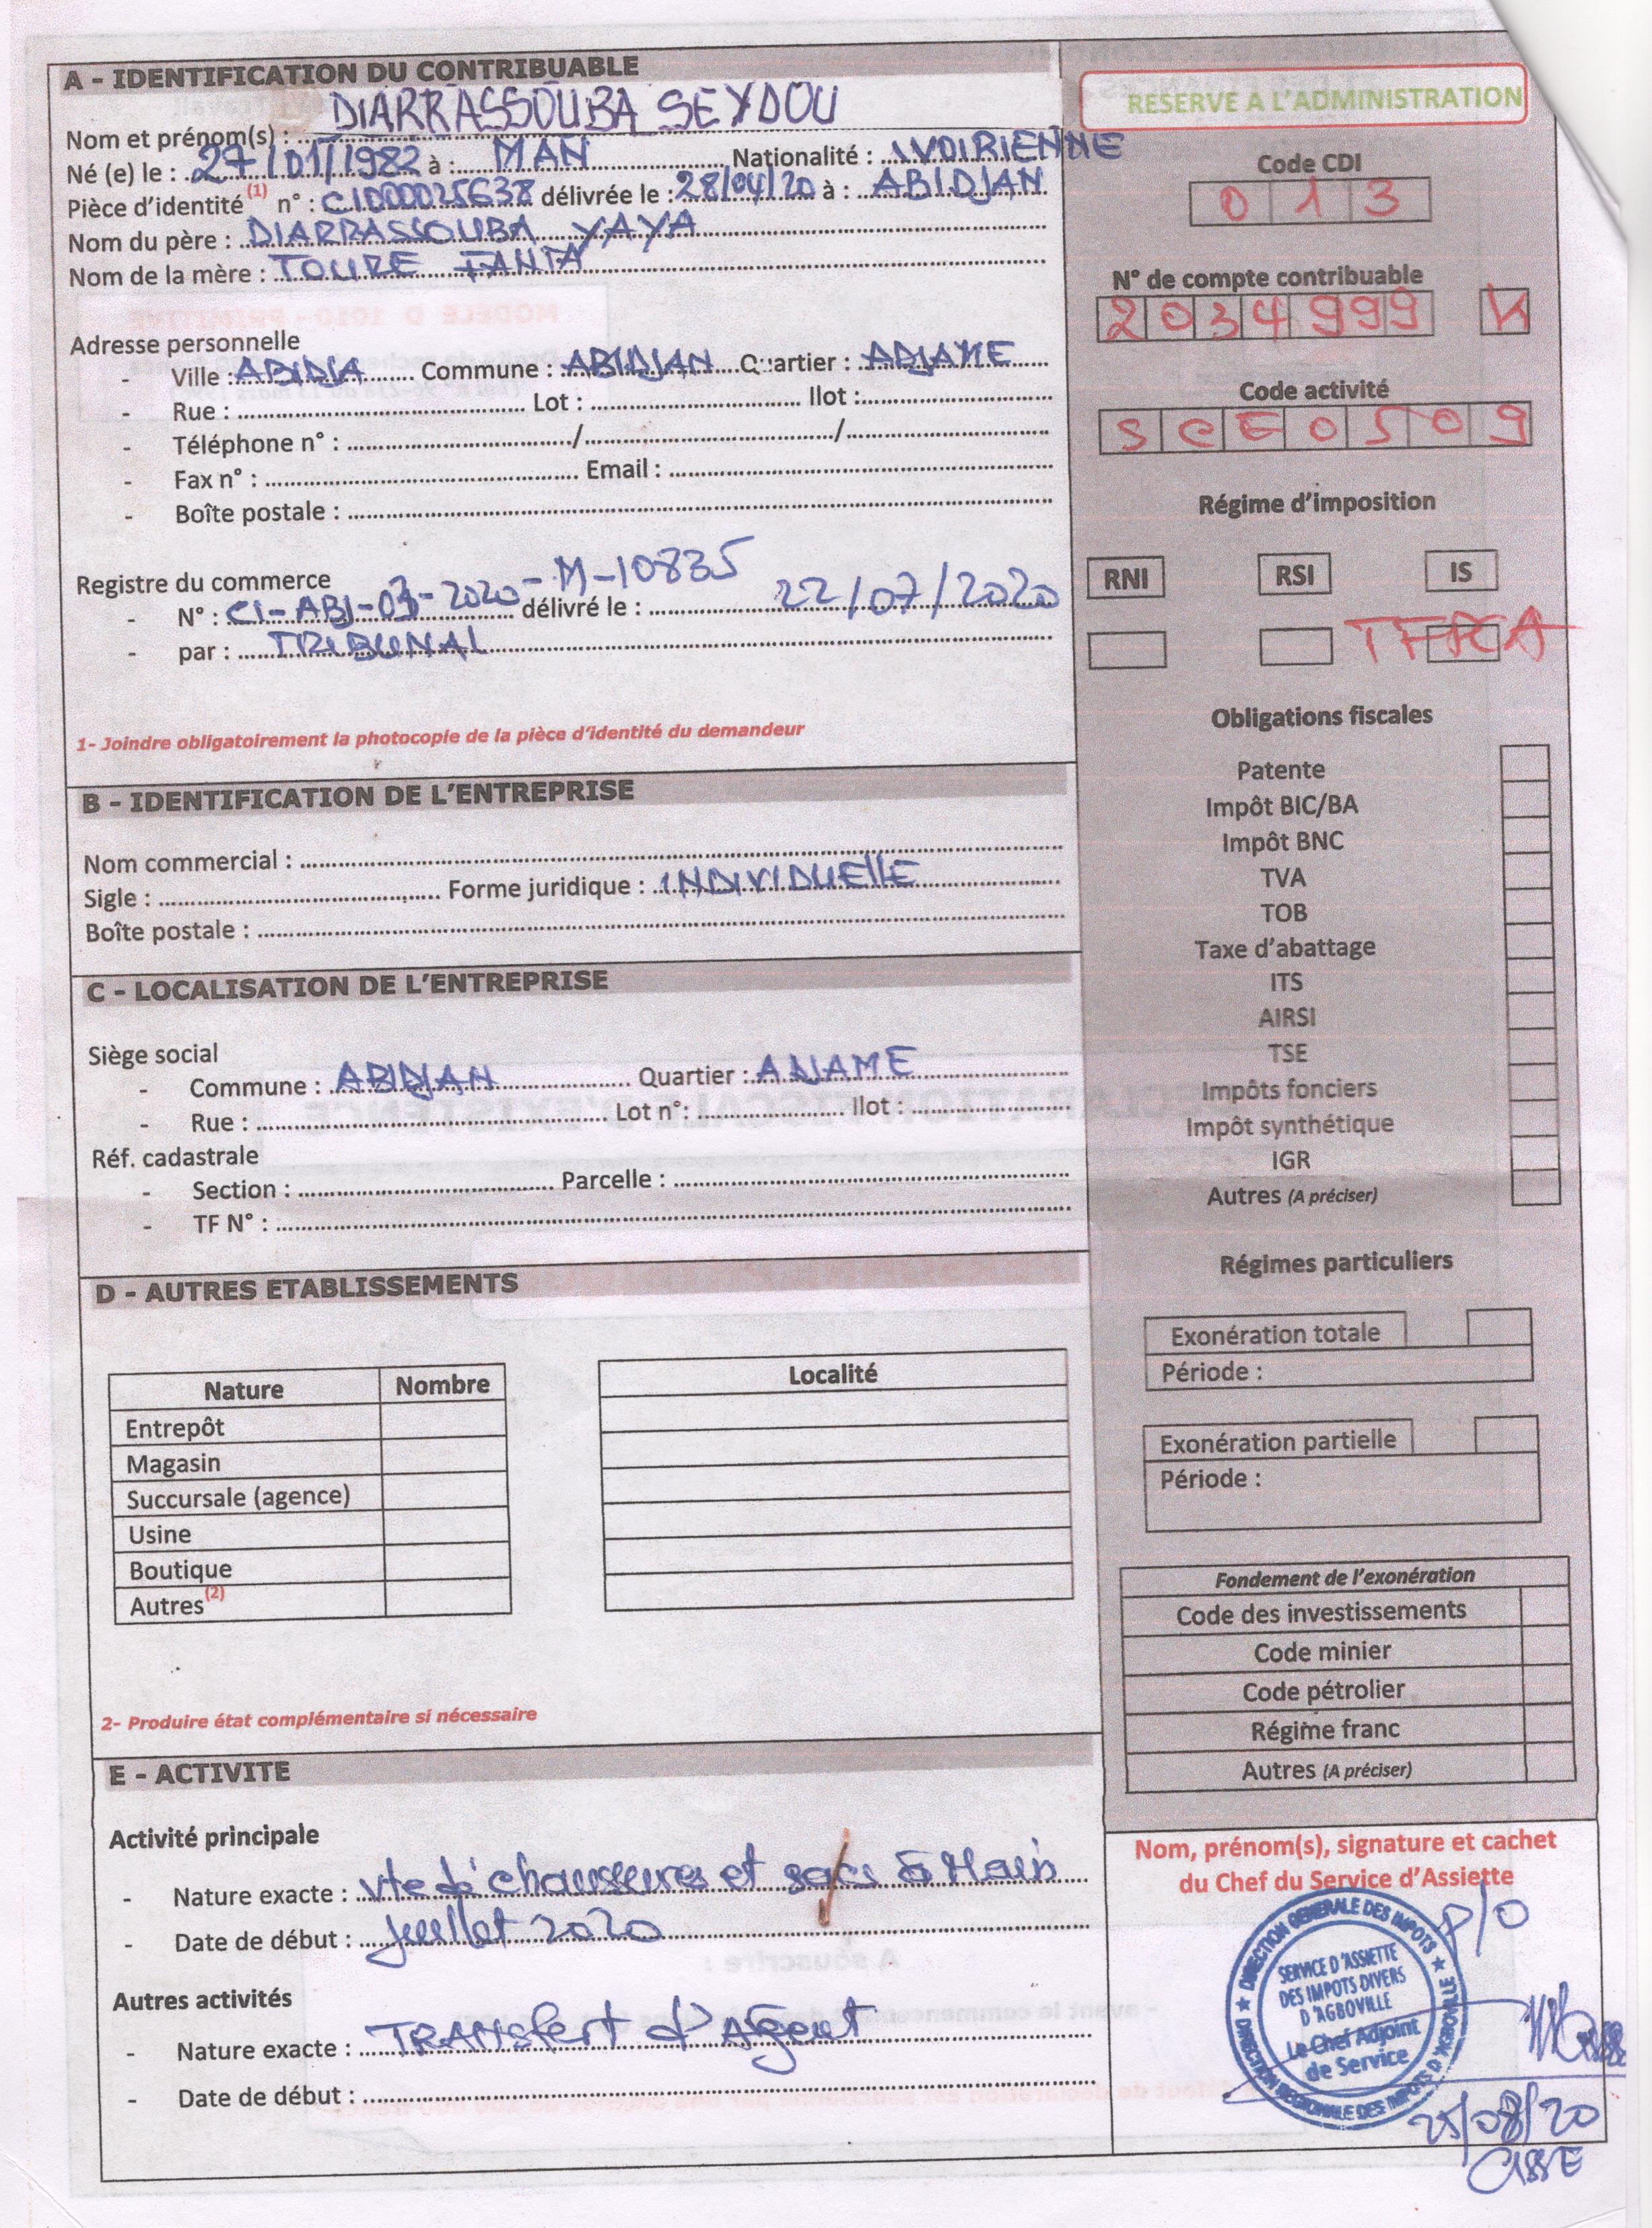 A - IDENTIFICATION DU CONTRIBUABLE
Nom et prénom(s) : DIARRASSOUBA SEYDOU
Né (e) le : 27/01/1982 à : MAN Nationalité : IVOIRIENNE
Pièce d'identité (1) n° : C1000025638 délivrée le : 28/04/20 à : ABIDJAN
Nom du père : DIARRASSOUBA YAYA
Nom de la mère : TOURE FANTA
Adresse personnelle
- Ville : ABIDJA Commune : ABIDJAN Quartier : ADJAME
- Rue : Lot : Ilot :
- Téléphone n° : / /
- Fax n° : Email :
- Boîte postale :
Registre du commerce
- N° : CI-ABJ-03-2020-M-10835 délivré le : 22/07/2020
- par : TRIBUNAL
1- Joindre obligatoirement la photocopie de la pièce d'identité du demandeur
B - IDENTIFICATION DE L'ENTREPRISE
Nom commercial :
Sigle : Forme juridique : INDIVIDUELLE
Boîte postale :
C - LOCALISATION DE L'ENTREPRISE
Siège social
- Commune : ABIDJAN Quartier : ADJAME
- Rue : Lot n°: Ilot :
Réf. cadastrale
- Section : Parcelle :
- TF N° :
D - AUTRES ETABLISSEMENTS
Nature Nombre Localité
Entrepôt
Magasin
Succursale (agence)
Usine
Boutique
Autres (2)
2- Produire état complémentaire si nécessaire
E - ACTIVITE
Activité principale
- Nature exacte : Vte de chaussures et sacs à Main
- Date de début : Juillet 2020
Autres activités
- Nature exacte : TRANSfert d'Argent
- Date de début :
RESERVE A L'ADMINISTRATION
Code CDI
0 1 3
N° de compte contribuable
2 0 3 4 9 9 9 K
Code activité
S C E 0 5 0 9
Régime d'imposition
RNI RSI IS
Obligations fiscales
Patente
Impôt BIC/BA
Impôt BNC
TVA
TOB
Taxe d'abattage
ITS
AIRSI
TSE
Impôts fonciers
Impôt synthétique
IGR
Autres (A préciser)
Régimes particuliers
Exonération totale
Période :
Exonération partielle
Période :
Fondement de l'exonération
Code des investissements
Code minier
Code pétrolier
Régime franc
Autres (A préciser)
Nom, prénom(s), signature et cachet
du Chef du Service d'Assiette
P/O
DIRECTION GENERALE DES IMPOTS
SERVICE D'ASSIETTE
DES IMPOTS DIVERS
D'AGBOVILLE
Le Chef Adjoint
de Service
DIRECTION REGIONALE DES IMPOTS D'AGBOVILLE
25/08/20
CISSE